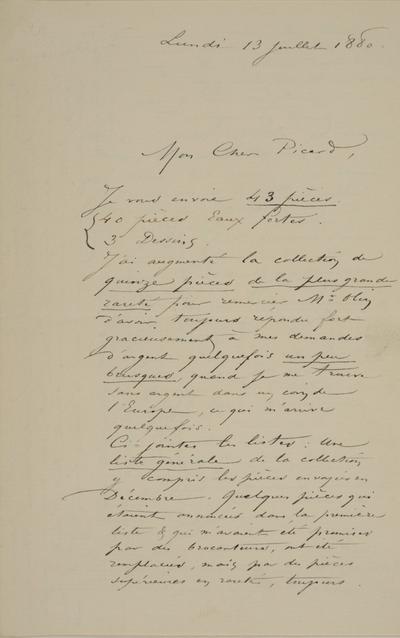 Lundi 13 juillet 1880.
Mon Cher Picard,
Je vous envoie 43 pièces.
40 pièces Eaux fortes.
3 Dessins.
J'ai augmenté la collection de
quinze pièces de la plus grande
rareté pour remercier Mr Olin
d'avoir toujours répondu fort
gracieusement à mes demandes
d'argent quelquefois un peu
brusques quand je me trouve
sans argent dans un coin de
l'Europe, ce qui m'arrive
quelquefois.
Ci-jointes les listes : Une
liste générale de la collection
y compris les pièces envoyées en
Décembre. Quelques pièces qui
étaient annoncées dans la première
liste & qui m'avaient été promises
par des braconteurs, ont été
remplacées, mais par des pièces
supérieures en rareté, toujours.